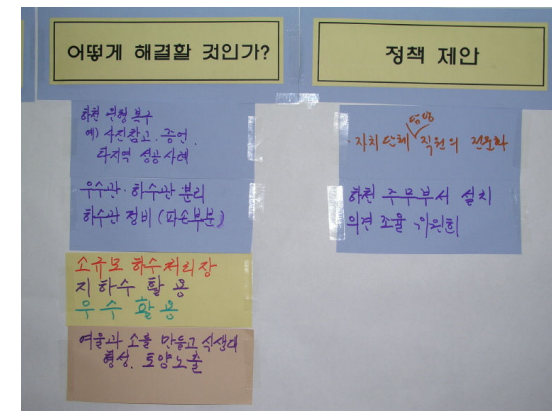 어떻게 해결할 것인가?
하천 원형 복구
예) 사진참고. 증언.
타지역 성공사례
우수관·하수관 분리
하수관 정비 (파손부분)
소규모 하수처리장
지하수 활용
우수 활용
여울과 소를 만들고 식생대
형성. 토양노출
정책 제안
담당
·자치단체 직원의 전문화
하천 주무부서 설치
의견 조율 위원회